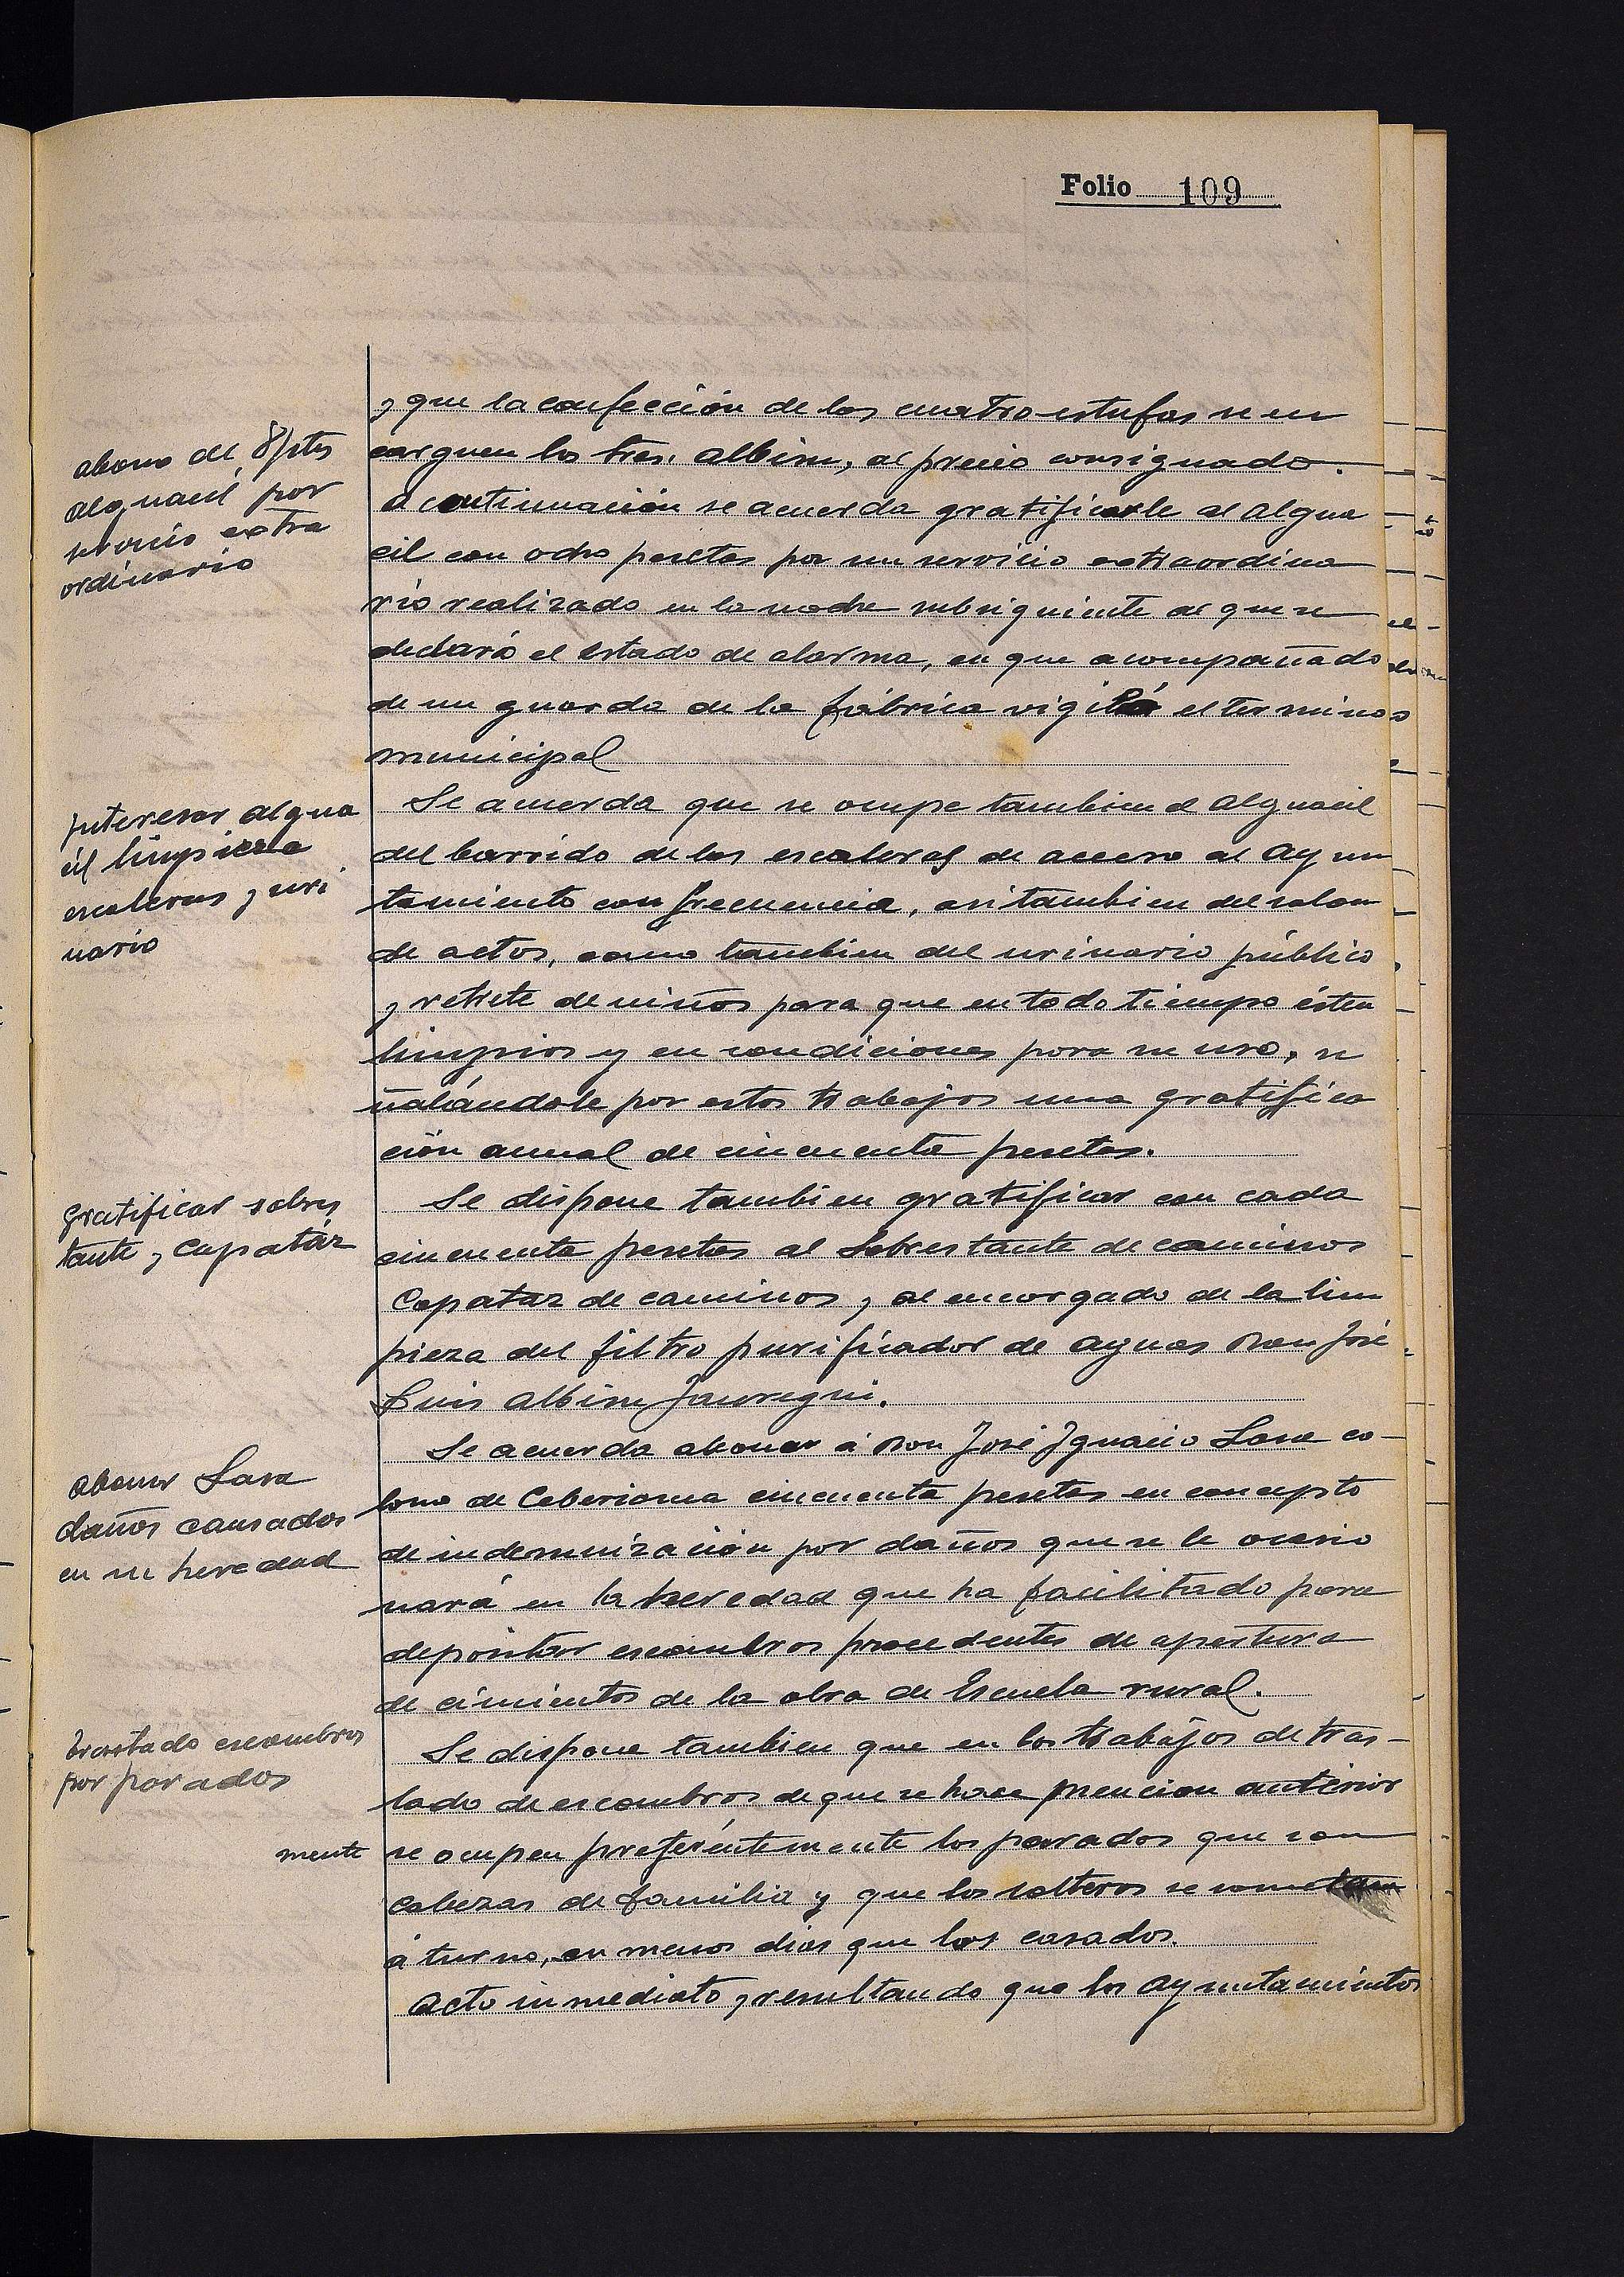 Folio 109
y que la confección de las cuatro estufas se en
carguen los Sres. Albisu, al precio consignado.
abono de 8 ptas
alguacil, por
servicio extra
ordinario
A continuación se acuerda gratificarle al Algua
cil con ocho pesetas por un servicio extraordina
rio realizado en la noche subsiguiente al que se
declaró el estado de alarma, en que acompañado
de un guarda de la fábrica vigiló el termino
municipal
Interesar algua
cil limpieza
escaleras y uri
nario
Se acuerda que se ocupe tambien el Alguacil
del barrido de las escaleras de acceso al Ayun
tamiento con frecuencia, asi tambien del salon
de actos, como tambien del urinario público
y retrete de niños para que en todo tiempo ésten
limpios y en condiciones para su uso, se
ñalándole por estos trabajos una gratifica
ción anual de cincuenta pesetas.
Gratificar sobres
tante y Capatáz
Se dispone tambien gratificar con cada
cincuenta pesetas al Sobrestante de caminos
Capataz de caminos y al encargado de la lim
pieza del filtro purificador de aguas Don José
Luis Albisu Jauregui.
Abonar Lasa
daños causados
en su heredad
Se acuerda abonar á Don José Ignacio Lasa co-
lono de Ceberioma cincuenta pesetas en concepto
de indemnización por daños que se le ocasio
nará en la heredad que ha facilitado para
depositar escombros procedentes de apertura
de cimientos de la obra de Escuela rural.
Trastado escombros
por parados
Se dispone tambien que en los trabajos de tras-
lado de escombros de que se hace mencion anterior
mente se ocupen preferéntemente los parados que son
cabezas de familia y que los solteros se sometan
á turno, en menos dias que los casados.
Acto inmediato y resultando que los Ayuntamientos